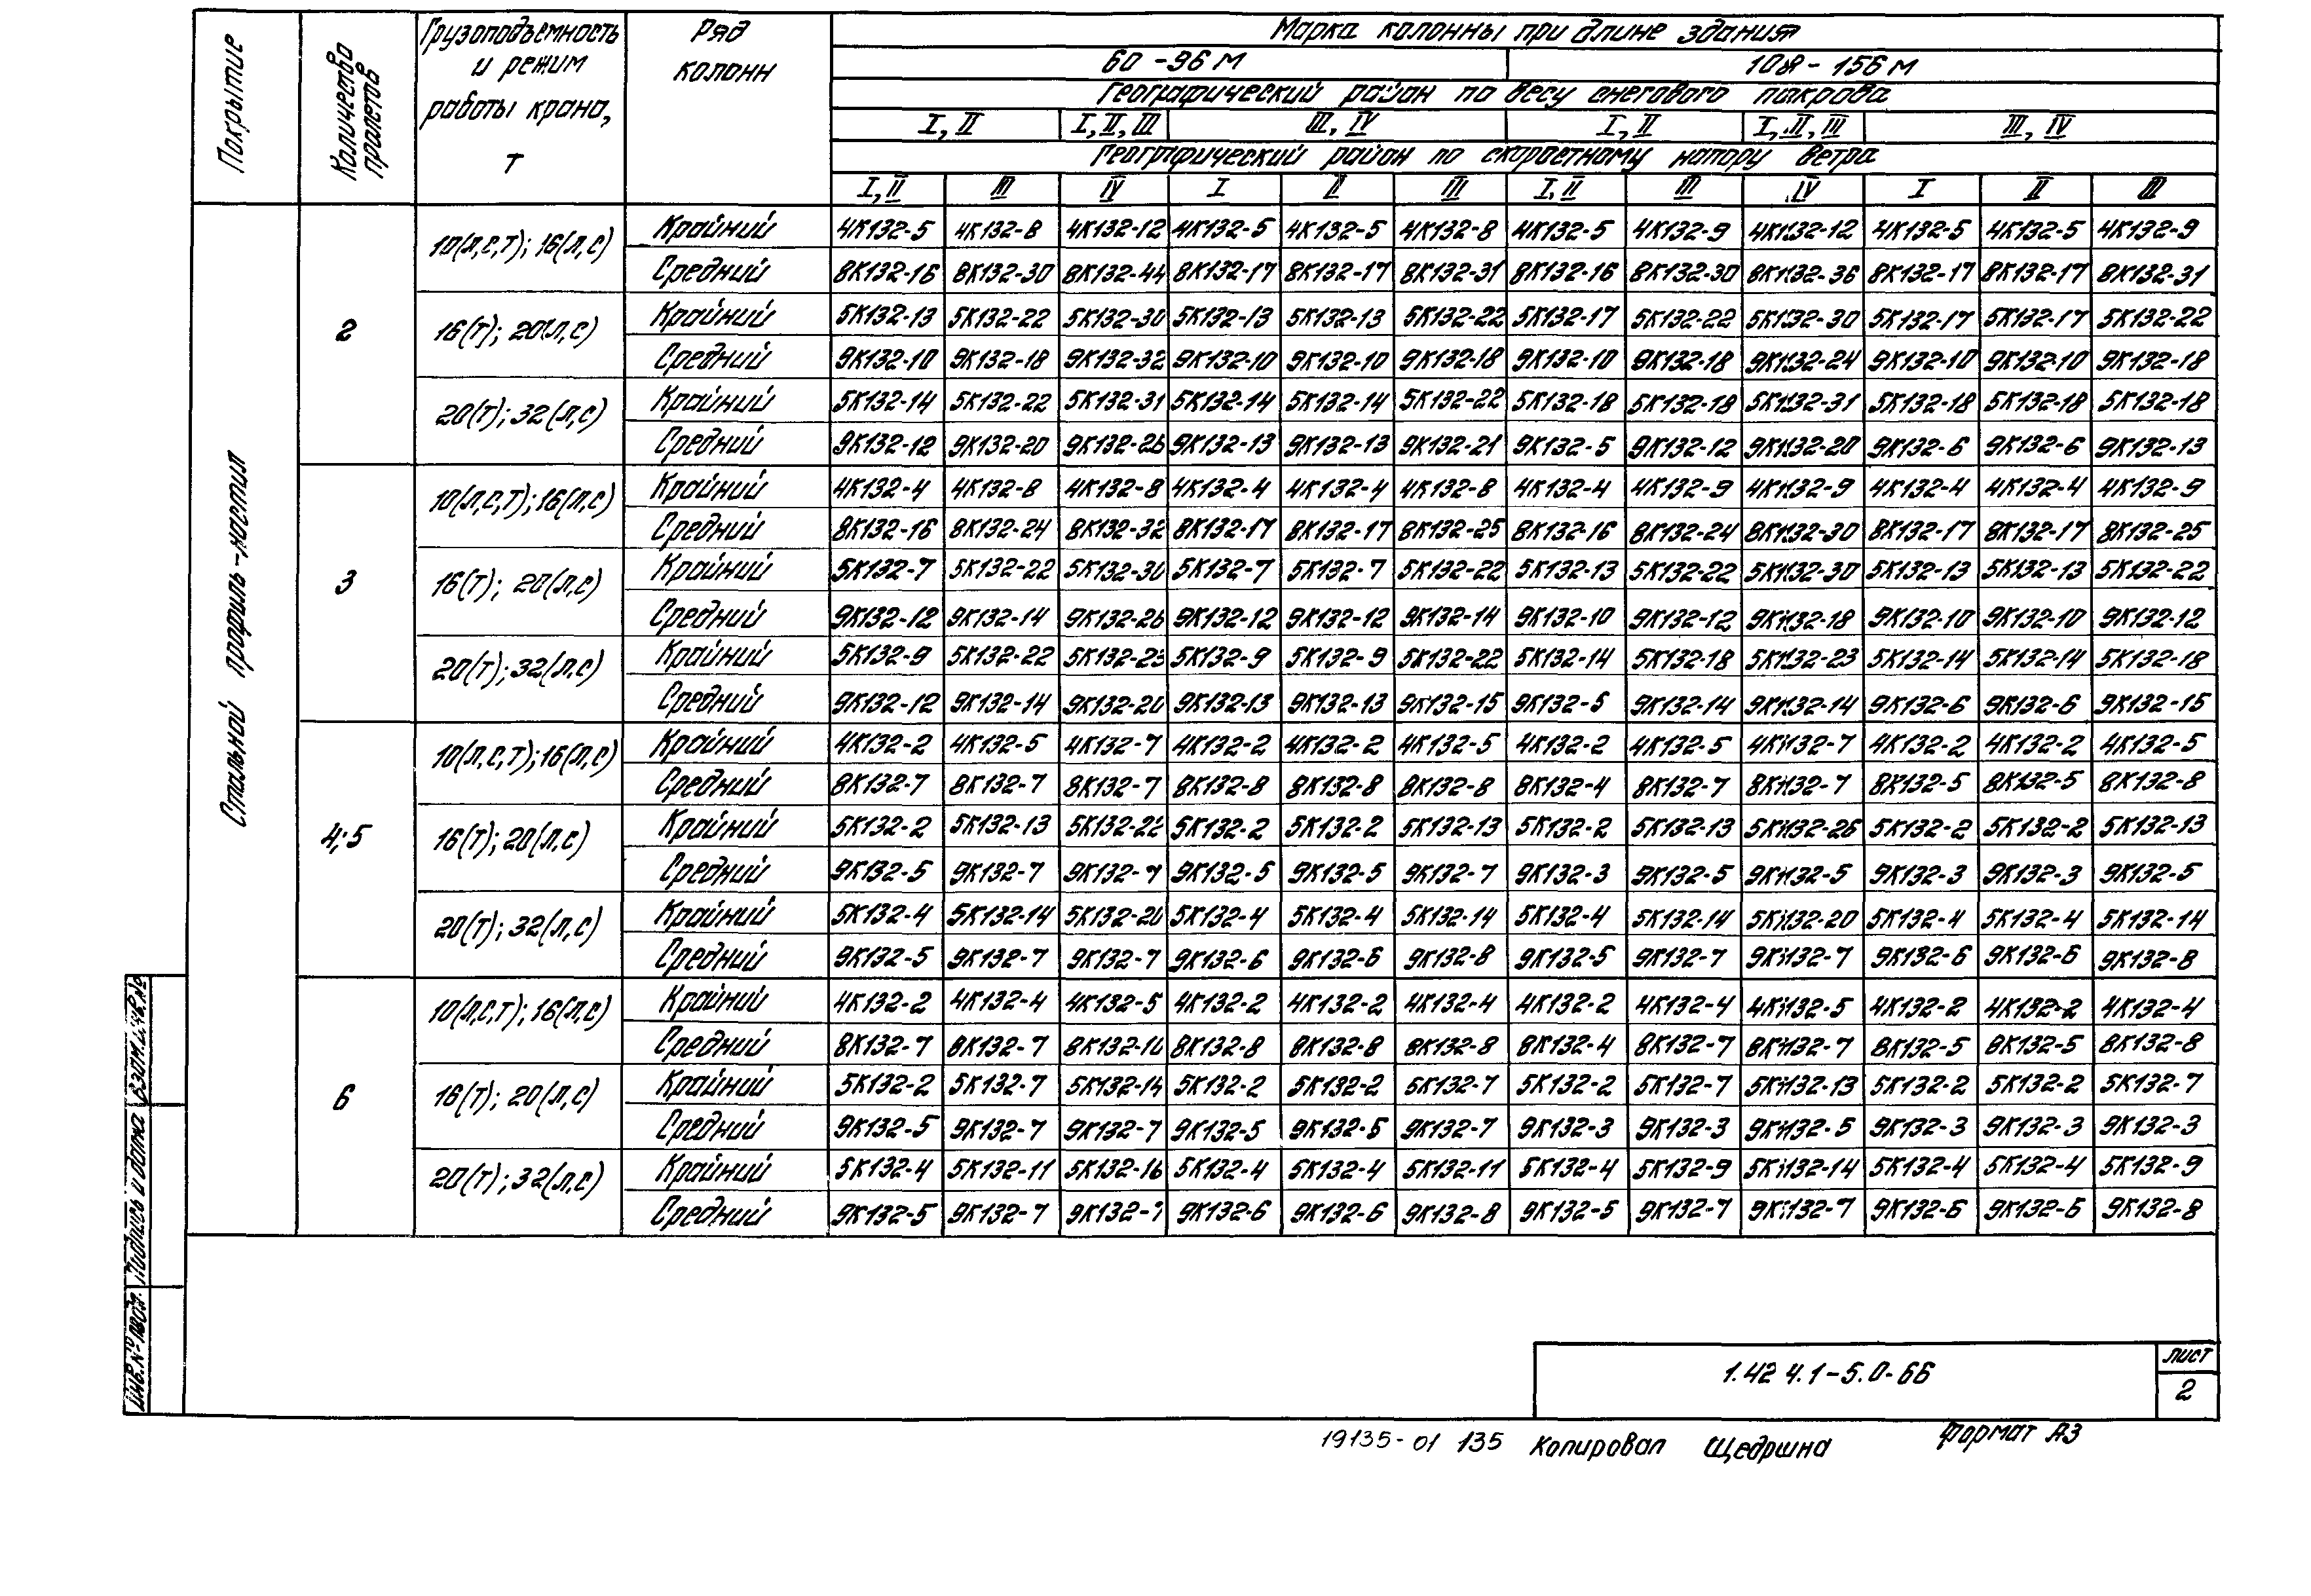 Покрытие
Количество пролетов
Грузоподъемность и режим работы крана, т
Ряд колонн
Марка колонны при длине здания
60 - 96 м 108 - 156 м
Географический район по весу снегового покрова
I, II I, II, III III, IV I, II I, II, III III, IV
Географический район по скоростному напору ветра
I, II III IV I II III I, II III IV I II III
Стальной профиль-настил
2
10(л,с,т); 16(л,с)
Крайний 4К132-5 4К132-8 4К132-12 4К132-5 4К132-5 4К132-8 4К132-5 4К132-9 4К132-12 4К132-5 4К132-5 4К132-9
Средний 8К132-16 8К132-30 8К132-44 8К132-17 8К132-17 8К132-31 8К132-16 8К132-30 8К132-36 8К132-17 8К132-17 8К132-31
16(т); 20(л,с)
Крайний 5К132-13 5К132-22 5К132-30 5К132-13 5К132-13 5К132-22 5К132-17 5К132-22 5К132-30 5К132-17 5К132-17 5К132-22
Средний 9К132-10 9К132-18 9К132-32 9К132-10 9К132-10 9К132-18 9К132-10 9К132-18 9К132-24 9К132-10 9К132-10 9К132-18
20(т); 32(л,с)
Крайний 5К132-14 5К132-22 5К132-31 5К132-14 5К132-14 5К132-22 5К132-18 5К132-18 5К132-31 5К132-18 5К132-18 5К132-18
Средний 9К132-12 9К132-20 9К132-26 9К132-13 9К132-13 9К132-21 9К132-5 9К132-12 9К132-20 9К132-6 9К132-6 9К132-13
3
10(л,с,т); 16(л,с)
Крайний 4К132-4 4К132-8 4К132-8 4К132-4 4К132-4 4К132-8 4К132-4 4К132-9 4К132-9 4К132-4 4К132-4 4К132-9
Средний 8К132-16 8К132-24 8К132-32 8К132-17 8К132-17 8К132-25 8К132-16 8К132-24 8К132-30 8К132-17 8К132-17 8К132-25
16(т); 20(л,с)
Крайний 5К132-7 5К132-22 5К132-30 5К132-7 5К132-7 5К132-22 5К132-13 5К132-22 5К132-30 5К132-13 5К132-13 5К132-22
Средний 9К132-12 9К132-14 9К132-26 9К132-12 9К132-12 9К132-14 9К132-10 9К132-12 9К132-18 9К132-10 9К132-10 9К132-12
20(т); 32(л,с)
Крайний 5К132-9 5К132-22 5К132-23 5К132-9 5К132-9 5К132-22 5К132-14 5К132-18 5К132-23 5К132-14 5К132-14 5К132-18
Средний 9К132-12 9К132-14 9К132-20 9К132-13 9К132-13 9К132-15 9К132-5 9К132-14 9К132-14 9К132-6 9К132-6 9К132-15
4; 5
10(л,с,т); 16(л,с)
Крайний 4К132-2 4К132-5 4К132-7 4К132-2 4К132-2 4К132-5 4К132-2 4К132-5 4К132-7 4К132-2 4К132-2 4К132-5
Средний 8К132-7 8К132-7 8К132-7 8К132-8 8К132-8 8К132-8 8К132-4 8К132-7 8К132-7 8К132-5 8К132-5 8К132-8
16(т); 20(л,с)
Крайний 5К132-2 5К132-13 5К132-22 5К132-2 5К132-2 5К132-13 5К132-2 5К132-13 5К132-26 5К132-2 5К132-2 5К132-13
Средний 9К132-5 9К132-7 9К132-7 9К132-5 9К132-5 9К132-7 9К132-3 9К132-5 9К132-5 9К132-3 9К132-3 9К132-5
20(т); 32(л,с)
Крайний 5К132-4 5К132-14 5К132-20 5К132-4 5К132-4 5К132-14 5К132-4 5К132-14 5К132-20 5К132-4 5К132-4 5К132-14
Средний 9К132-5 9К132-7 9К132-7 9К132-6 9К132-6 9К132-8 9К132-5 9К132-7 9К132-7 9К132-6 9К132-6 9К132-8
6
10(л,с,т); 16(л,с)
Крайний 4К132-2 4К132-4 4К132-5 4К132-2 4К132-2 4К132-4 4К132-2 4К132-4 4К132-5 4К132-2 4К132-2 4К132-4
Средний 8К132-7 8К132-7 8К132-10 8К132-8 8К132-8 8К132-8 8К132-4 8К132-7 8К132-7 8К132-5 8К132-5 8К132-8
16(т); 20(л,с)
Крайний 5К132-2 5К132-7 5К132-14 5К132-2 5К132-2 5К132-7 5К132-2 5К132-7 5К132-13 5К132-2 5К132-2 5К132-7
Средний 9К132-5 9К132-7 9К132-7 9К132-5 9К132-5 9К132-7 9К132-3 9К132-3 9К132-5 9К132-3 9К132-3 9К132-3
20(т); 32(л,с)
Крайний 5К132-4 5К132-11 5К132-16 5К132-4 5К132-4 5К132-11 5К132-4 5К132-9 5К132-14 5К132-4 5К132-4 5К132-9
Средний 9К132-5 9К132-7 9К132-7 9К132-6 9К132-6 9К132-8 9К132-5 9К132-7 9К132-7 9К132-6 9К132-6 9К132-8
Инв.№ подл. Подпись и дата Взам.инв.№
1.424.1-5.0-6б
лист
2
19135-01 135 Копировал Щедрина Формат А3